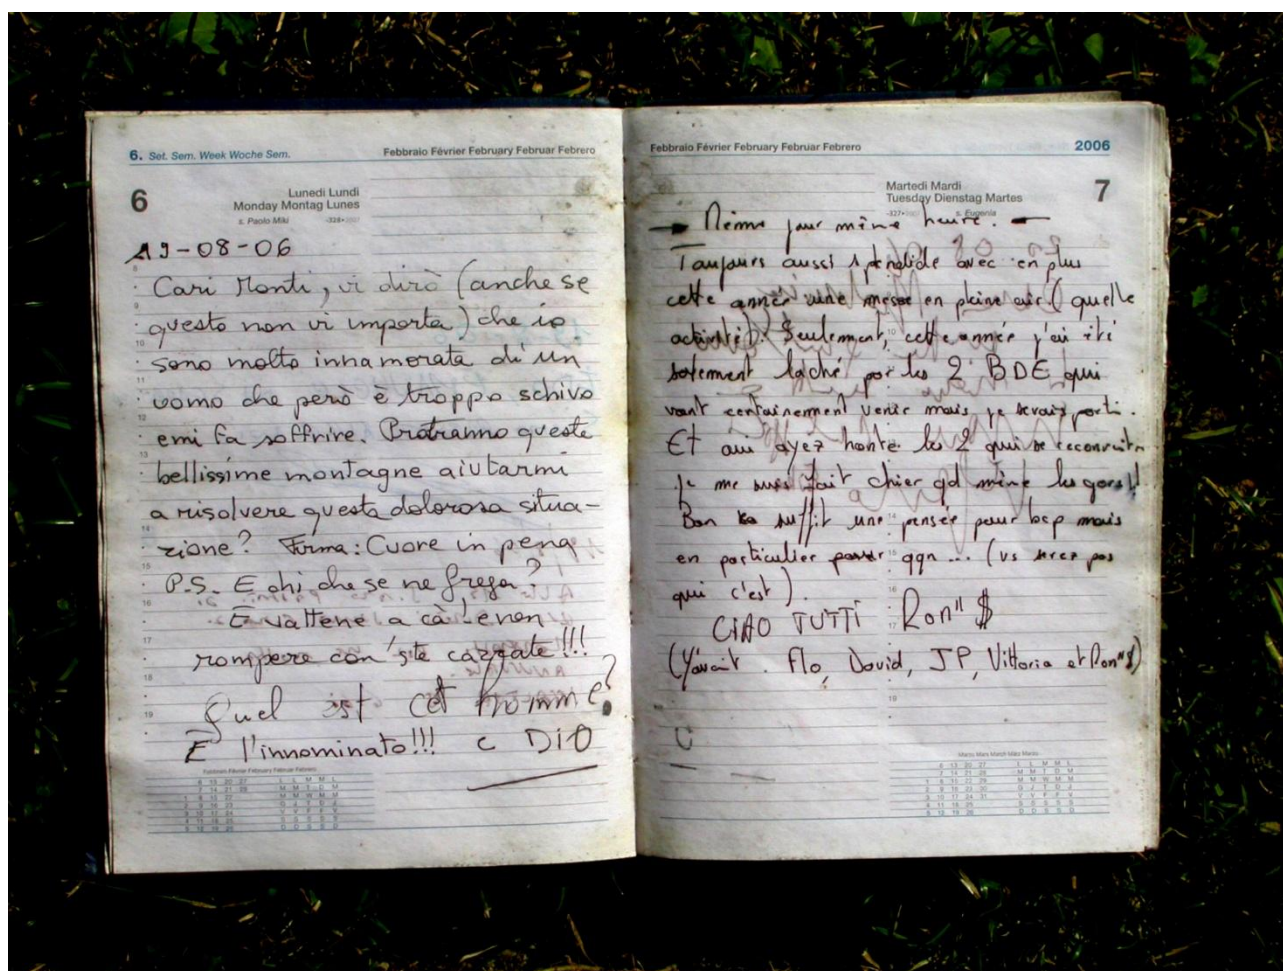 6. Set. Sem. Week Woche Sem.
Febbraio Février February Februar Febrero
6
Lunedì Lundi
Monday Montag Lunes
s. Paolo Miki
19-08-06
Cari Monti, vi dirò (anche se
questo non vi importa) che io
sono molto innamorata di un
uomo che però è troppo schivo
e mi fa soffrire. Potranno queste
bellissime montagne aiutarmi
a risolvere questa dolorosa situa-
zione? Firma: Cuore in pena
P.S. E chi che se ne frega?
E vattene a cà e non
rompere con 'ste cazzate!!!
Quel est cet homme?
È l'innominato!!! c DiO
Febbraio Février February Februar Febrero
2006
Martedì Mardi
Tuesday Dienstag Martes
7
s. Eugenia
Même jour même heure.
Toujours aussi splendide avec en plus
cette année une messe en pleine air (quelle
activité). Seulement, cette année j'ai été
lâché par les 2 BDE qui
vont certainement venir mais je serais parti.
Et oui ayez honte les 2 qui se
je me suis fait chier qd même les gars!!
Bon suffit une pensée pour bcp mais
en particulier pour qqn... (vs serez pas
qui c'est).
CIAO TUTTI Ron" $
(Y'avait. Flo, David, JP, Vittoria et Ron"$)